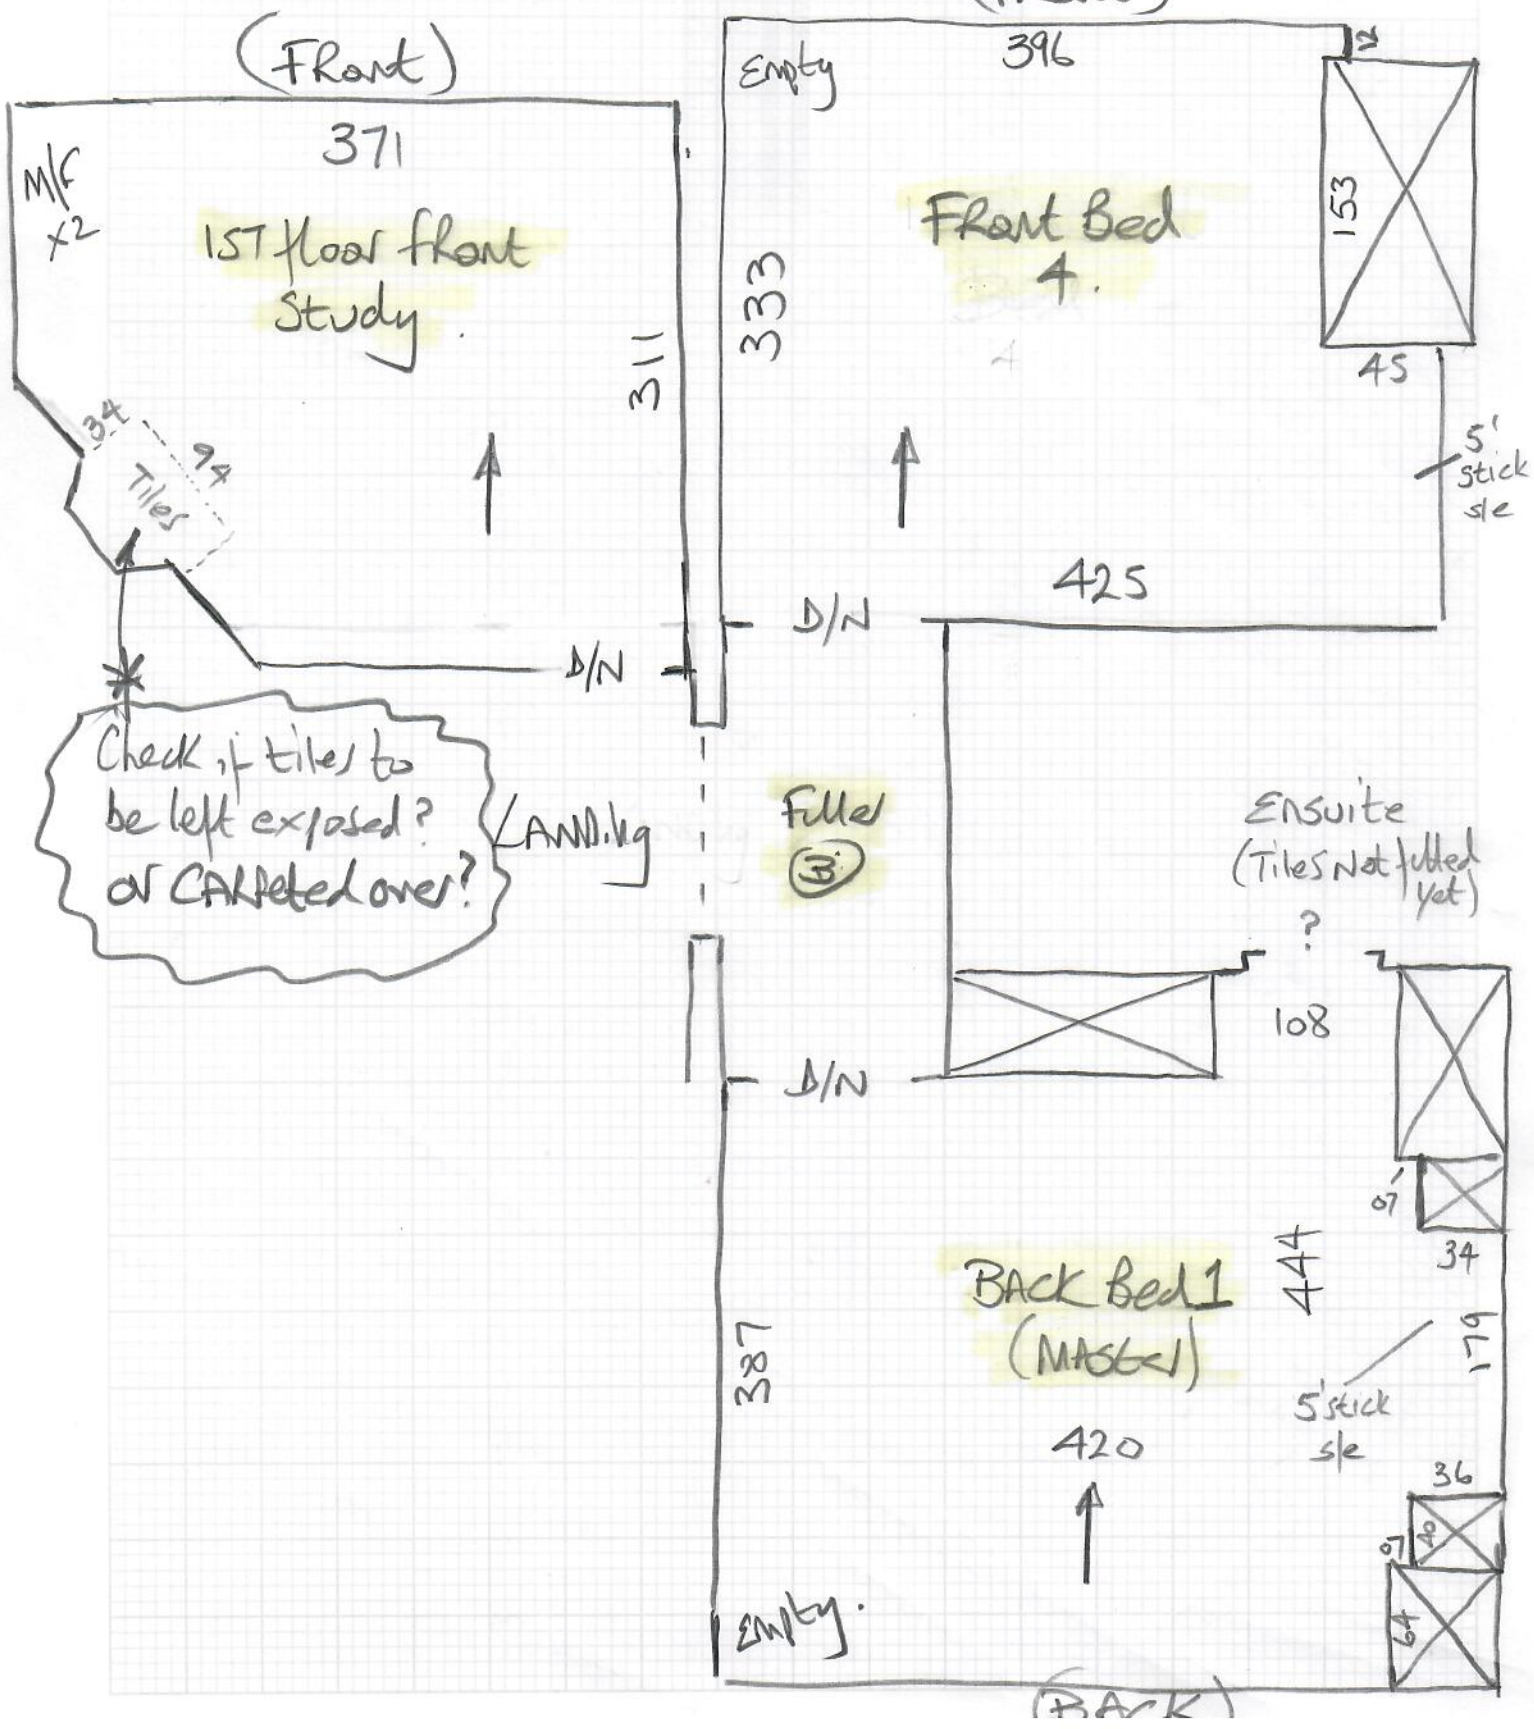 (Front)
371
M/F
x2
1ST floor front
Study.
311
34
94
Tiles
D/N
Check if tiles to
be left exposed?
or CARPeted over?
LANDing
Empty
396
12
Front Bed
4.
333
153
45
5'
stick
s/e
425
D/N
Filler
3
Ensuite
(Tiles Not fitted
yet)
?
108
D/N
07
34
BACK Bed 1
(MASter)
444
179
387
5'stick
s/e
420
36
07
40
64
Empty.
(BACK)